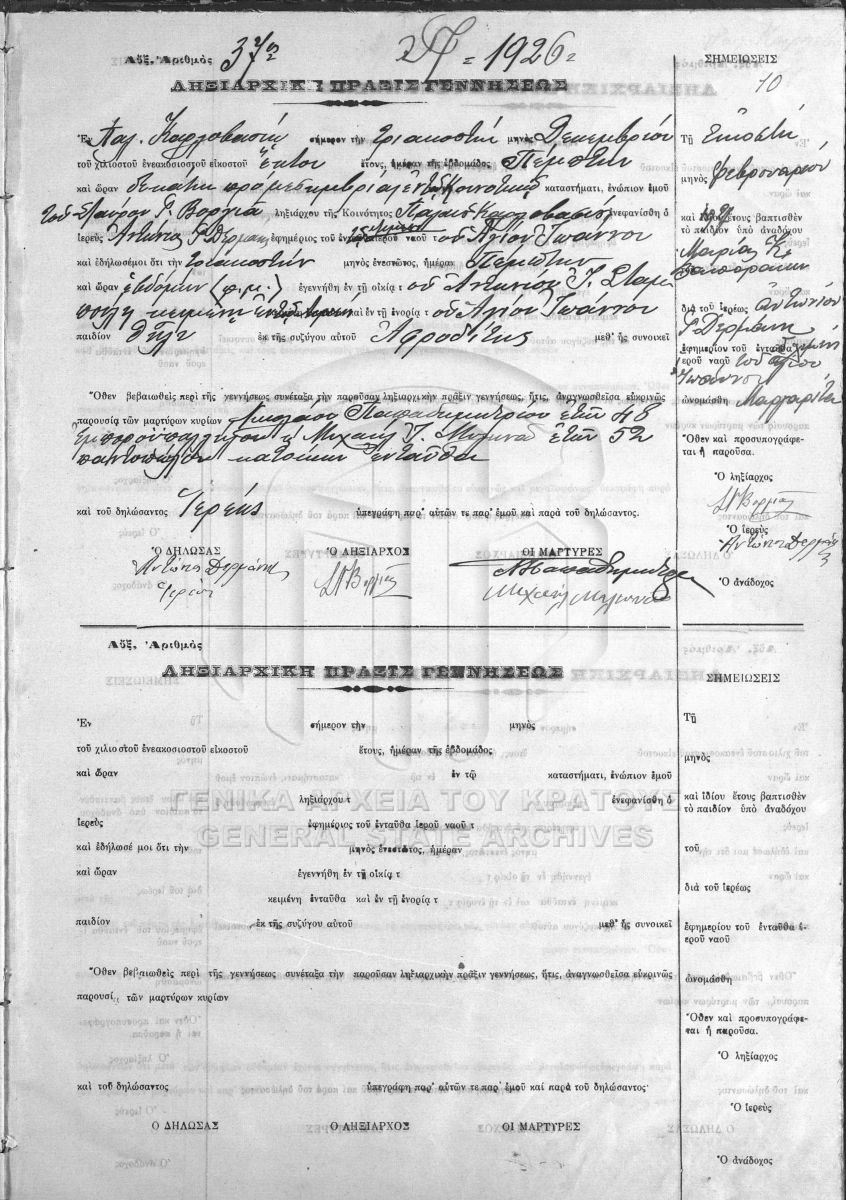 Αὔξ. Ἀριθμὸς 37 1926
ΛΗΞΙΑΡΧΙΚΗ ΠΡΑΞΙΣ ΓΕΝΝΗΣΕΩΣ
Ἐν Παλ. Καρλοβασίῳ σήμερον τὴν τριακοστὴν μηνὸς Δεκεμβρίου
τοῦ χιλιοστοῦ ἐνεακοσιοστοῦ εἰκοστοῦ ἕκτου ἔτους, ἡμέραν τῆς ἑβδομάδος Πέμπτην
καὶ ὥραν δεκάτην προμεσημβρίαν ἐν τῷ Κοινοτικῷ καταστήματι, ἐνώπιον ἐμοῦ
τοῦ Σταύρου Γ. Βορριᾶ ληξιάρχου τῆς Κοινότητος Παλαιοῦ Καρλοβασίου ἐνεφανίσθη ὁ
ἱερεὺς Ἀντώνιος Γ. Δερμάνης ἐφημέριος τοῦ ἱεροῦ ναοῦ τοῦ Ἁγίου Ἰωάννου
καὶ ἐδήλωσέ μοι ὅτι τὴν τριακοστὴν μηνὸς ἐνεστῶτος, ἡμέραν Πέμπτην
καὶ ὥραν ἑβδόμην (π.μ.) ἐγεννήθη ἐν τῇ οἰκίᾳ τοῦ Ἀντωνίου Ἰ. Σταμ
κειμένῃ καὶ ἐν τῇ ἐνορίᾳ τοῦ Ἁγίου Ἰωάννου
παιδίον θῆλυ ἐκ τῆς συζύγου αὐτοῦ Ἀφροδίτης μεθ' ἧς συνοικεῖ
Ὅθεν βεβαιωθεὶς περὶ τῆς γεννήσεως συνέταξα τὴν παροῦσαν ληξιαρχικὴν πρᾶξιν γεννήσεως, ἥτις, ἀναγνωσθεῖσα εὐκρινῶς
παρουσίᾳ τῶν μαρτύρων κυρίων Νικολάου Παπαδημητρίου ἐτῶν 48
ἐμποροϋπαλλήλου κ Μιχαὴλ Ἰ. Μυλωνᾶ ἐτῶν 52
παντοπώλου κατοίκων ἐνταῦθα
καὶ τοῦ δηλώσαντος Ἱερέως ὑπεγράφη παρ' αὐτῶν τε παρ' ἐμοῦ καὶ παρὰ τοῦ δηλώσαντος.
Ὁ ΔΗΛΩΣΑΣ Ὁ ΛΗΞΙΑΡΧΟΣ ΟΙ ΜΑΡΤΥΡΕΣ
Ἀντώνιος Δερμάνης ΣΓΒορριᾶς ΝΠαπαδημητρίου
Ἱερεύς Μιχαὴλ Μυλωνᾶς
ΣΗΜΕΙΩΣΕΙΣ
10
Τῇ Εἰκοστῇ
μηνὸς Φεβρουαρίου
καὶ 1927 ἔτους βαπτισθὲν
τὸ παιδίον ὑπὸ ἀναδόχου
Μαρίας Κ.
διὰ τοῦ ἱερέως Ἀντωνίου
Γ. Δερμάνη
ἐφημερίου τοῦ ἐνταῦθα
ἱεροῦ ναοῦ τοῦ Ἁγίου
Ἰωάννου
ὠνομάσθη Μαργαρίτα
Ὅθεν καὶ προσυπογράφε-
ται ἡ παροῦσα.
Ὁ ληξίαρχος
ΣΓΒορριᾶς
Ὁ ἱερεὺς
Ἀντώνιος Δερμάνης
Ὁ ἀνάδοχος
Αὔξ. Ἀριθμὸς
ΛΗΞΙΑΡΧΙΚΗ ΠΡΑΞΙΣ ΓΕΝΝΗΣΕΩΣ
Ἐν σήμερον τὴν μηνὸς
τοῦ χιλιοστοῦ ἐνεακοσιοστοῦ εἰκοστοῦ ἔτους, ἡμέραν τῆς ἑβδομάδος
καὶ ὥραν ἐν τῷ καταστήματι, ἐνώπιον ἐμοῦ
ληξιάρχου τ ἐνεφανίσθη ὁ
ἱερεὺς ἐφημέριος τοῦ ἐνταῦθα ἱεροῦ ναοῦ τ
καὶ ἐδήλωσέ μοι ὅτι τὴν μηνὸς ἐνεστῶτος, ἡμέραν
καὶ ὥραν ἐγεννήθη ἐν τῇ οἰκίᾳ τ
κειμένῃ ἐνταῦθα καὶ ἐν τῇ ἐνορίᾳ τ
παιδίον ἐκ τῆς συζύγου αὐτοῦ μεθ' ἧς συνοικεῖ
Ὅθεν βεβαιωθεὶς περὶ τῆς γεννήσεως συνέταξα τὴν παροῦσαν ληξιαρχικὴν πρᾶξιν γεννήσεως, ἥτις, ἀναγνωσθεῖσα εὐκρινῶς
παρουσίᾳ τῶν μαρτύρων κυρίων
καὶ τοῦ δηλώσαντος ὑπεγράφη παρ' αὐτῶν τε παρ' ἐμοῦ καὶ παρὰ τοῦ δηλώσαντος
Ὁ ΔΗΛΩΣΑΣ Ὁ ΛΗΞΙΑΡΧΟΣ ΟΙ ΜΑΡΤΥΡΕΣ
ΣΗΜΕΙΩΣΕΙΣ
Τῇ
μηνὸς
καὶ ἰδίου ἔτους βαπτισθὲν
τὸ παιδίον ὑπὸ ἀναδόχου
τοῦ
διὰ τοῦ ἱερέως
ἐφημερίου τοῦ ἐνταῦθα ἱ-
εροῦ ναοῦ
ὠνομάσθη
Ὅθεν καὶ προσυπογράφε-
ται ἡ παροῦσα.
Ὁ ληξίαρχος
Ὁ ἱερεὺς
Ὁ ἀνάδοχος
ΓΕΝΙΚΑ ΑΡΧΕΙΑ ΤΟΥ ΚΡΑΤΟΥΣ
GENERAL STATE ARCHIVES